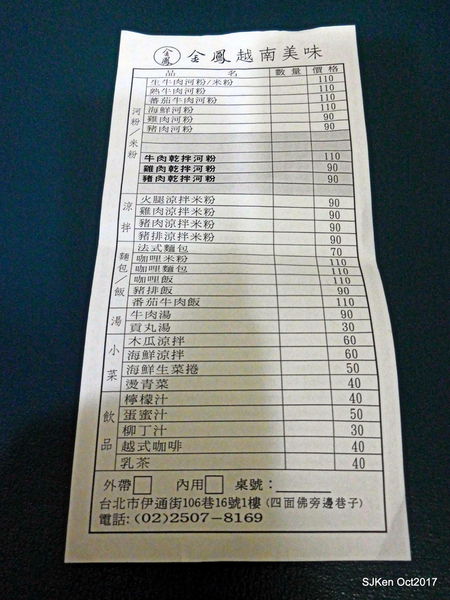 金鳳 金鳳越南美味
品 名 數量 價格
河粉/米粉
生牛肉河粉/米粉 110
熟牛肉河粉 110
蕃茄牛肉河粉 110
海鮮河粉 110
雞肉河粉 90
豬肉河粉 90
牛肉乾拌河粉 110
雞肉乾拌河粉 90
豬肉乾拌河粉 90
涼拌
火腿涼拌米粉 90
雞肉涼拌米粉 90
豬肉涼拌米粉 90
豬排涼拌米粉 90
麵包/飯
法式麵包 70
咖哩米粉 110
咖哩麵包 110
咖哩飯 110
豬排飯 90
蕃茄牛肉飯 110
湯
牛肉湯 90
貢丸湯 30
小菜
木瓜涼拌 60
海鮮涼拌 60
海鮮生菜捲 50
燙青菜 40
飲品
檸檬汁 40
蛋蜜汁 50
柳丁汁 30
越式咖啡 40
乳茶 40
外帶 內用 桌號:
台北市伊通街106巷16號1樓 (四面佛旁邊巷子)
電話:(02)2507-8169
SJKen Oct2017